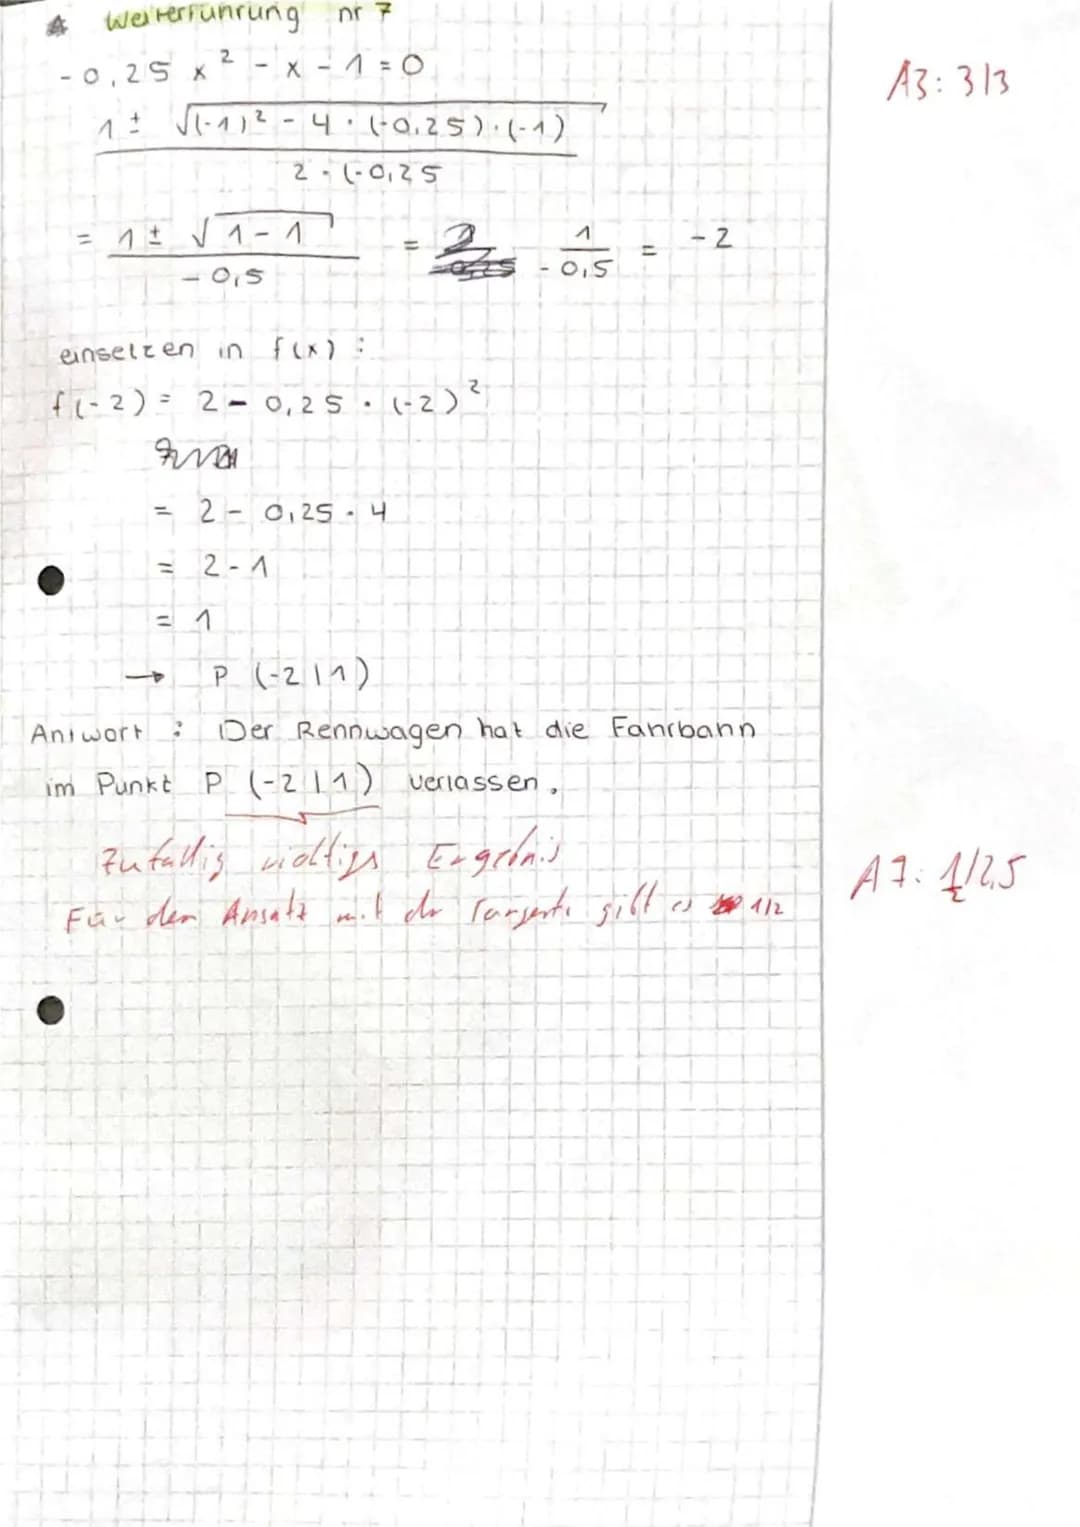 Weiterführung nr 7
A3: 3/3
-0,25 x² - x - 1 = 0
1 ± √(-1)² - 4 · (-0,25) · (-1)
2 · (-0,25
= 1 ± √1 - 1 = 1 = -2
-0,5 -0,5
einsetzen in f(x) :
f(-2) = 2 - 0,25 · (-2)²
= 2 - 0,25 · 4
= 2 - 1
= 1
→ P (-2 | 1)
Antwort : Der Rennwagen hat die Fahrbahn
im Punkt P (-2 | 1) verlassen.
Zufällig richtiges Ergebnis
A7: ½/2,5
Für den Ansatz mit der Tangente gibt es 1/2